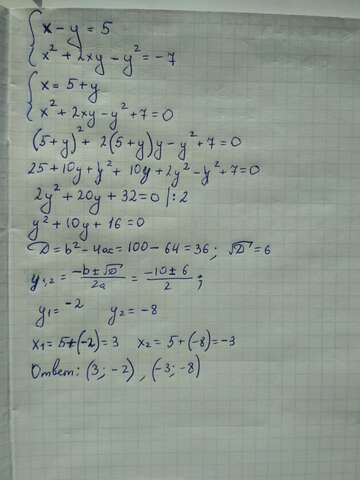 x - y = 5
x² + 2xy - y² = -7
x = 5 + y
x² + 2xy - y² + 7 = 0
(5+y)² + 2(5+y)y - y² + 7 = 0
25 + 10y + y² + 10y + 2y² - y² + 7 = 0
2y² + 20y + 32 = 0 |: 2
y² + 10y + 16 = 0
D = b² - 4ac = 100 - 64 = 36; √D = 6
y₁,₂ = (-b ± √D)/2a = (-10 ± 6)/2;
y₁ = -2 y₂ = -8
x₁ = 5 + (-2) = 3 x₂ = 5 + (-8) = -3
Ответ: (3; -2), (-3; -8)